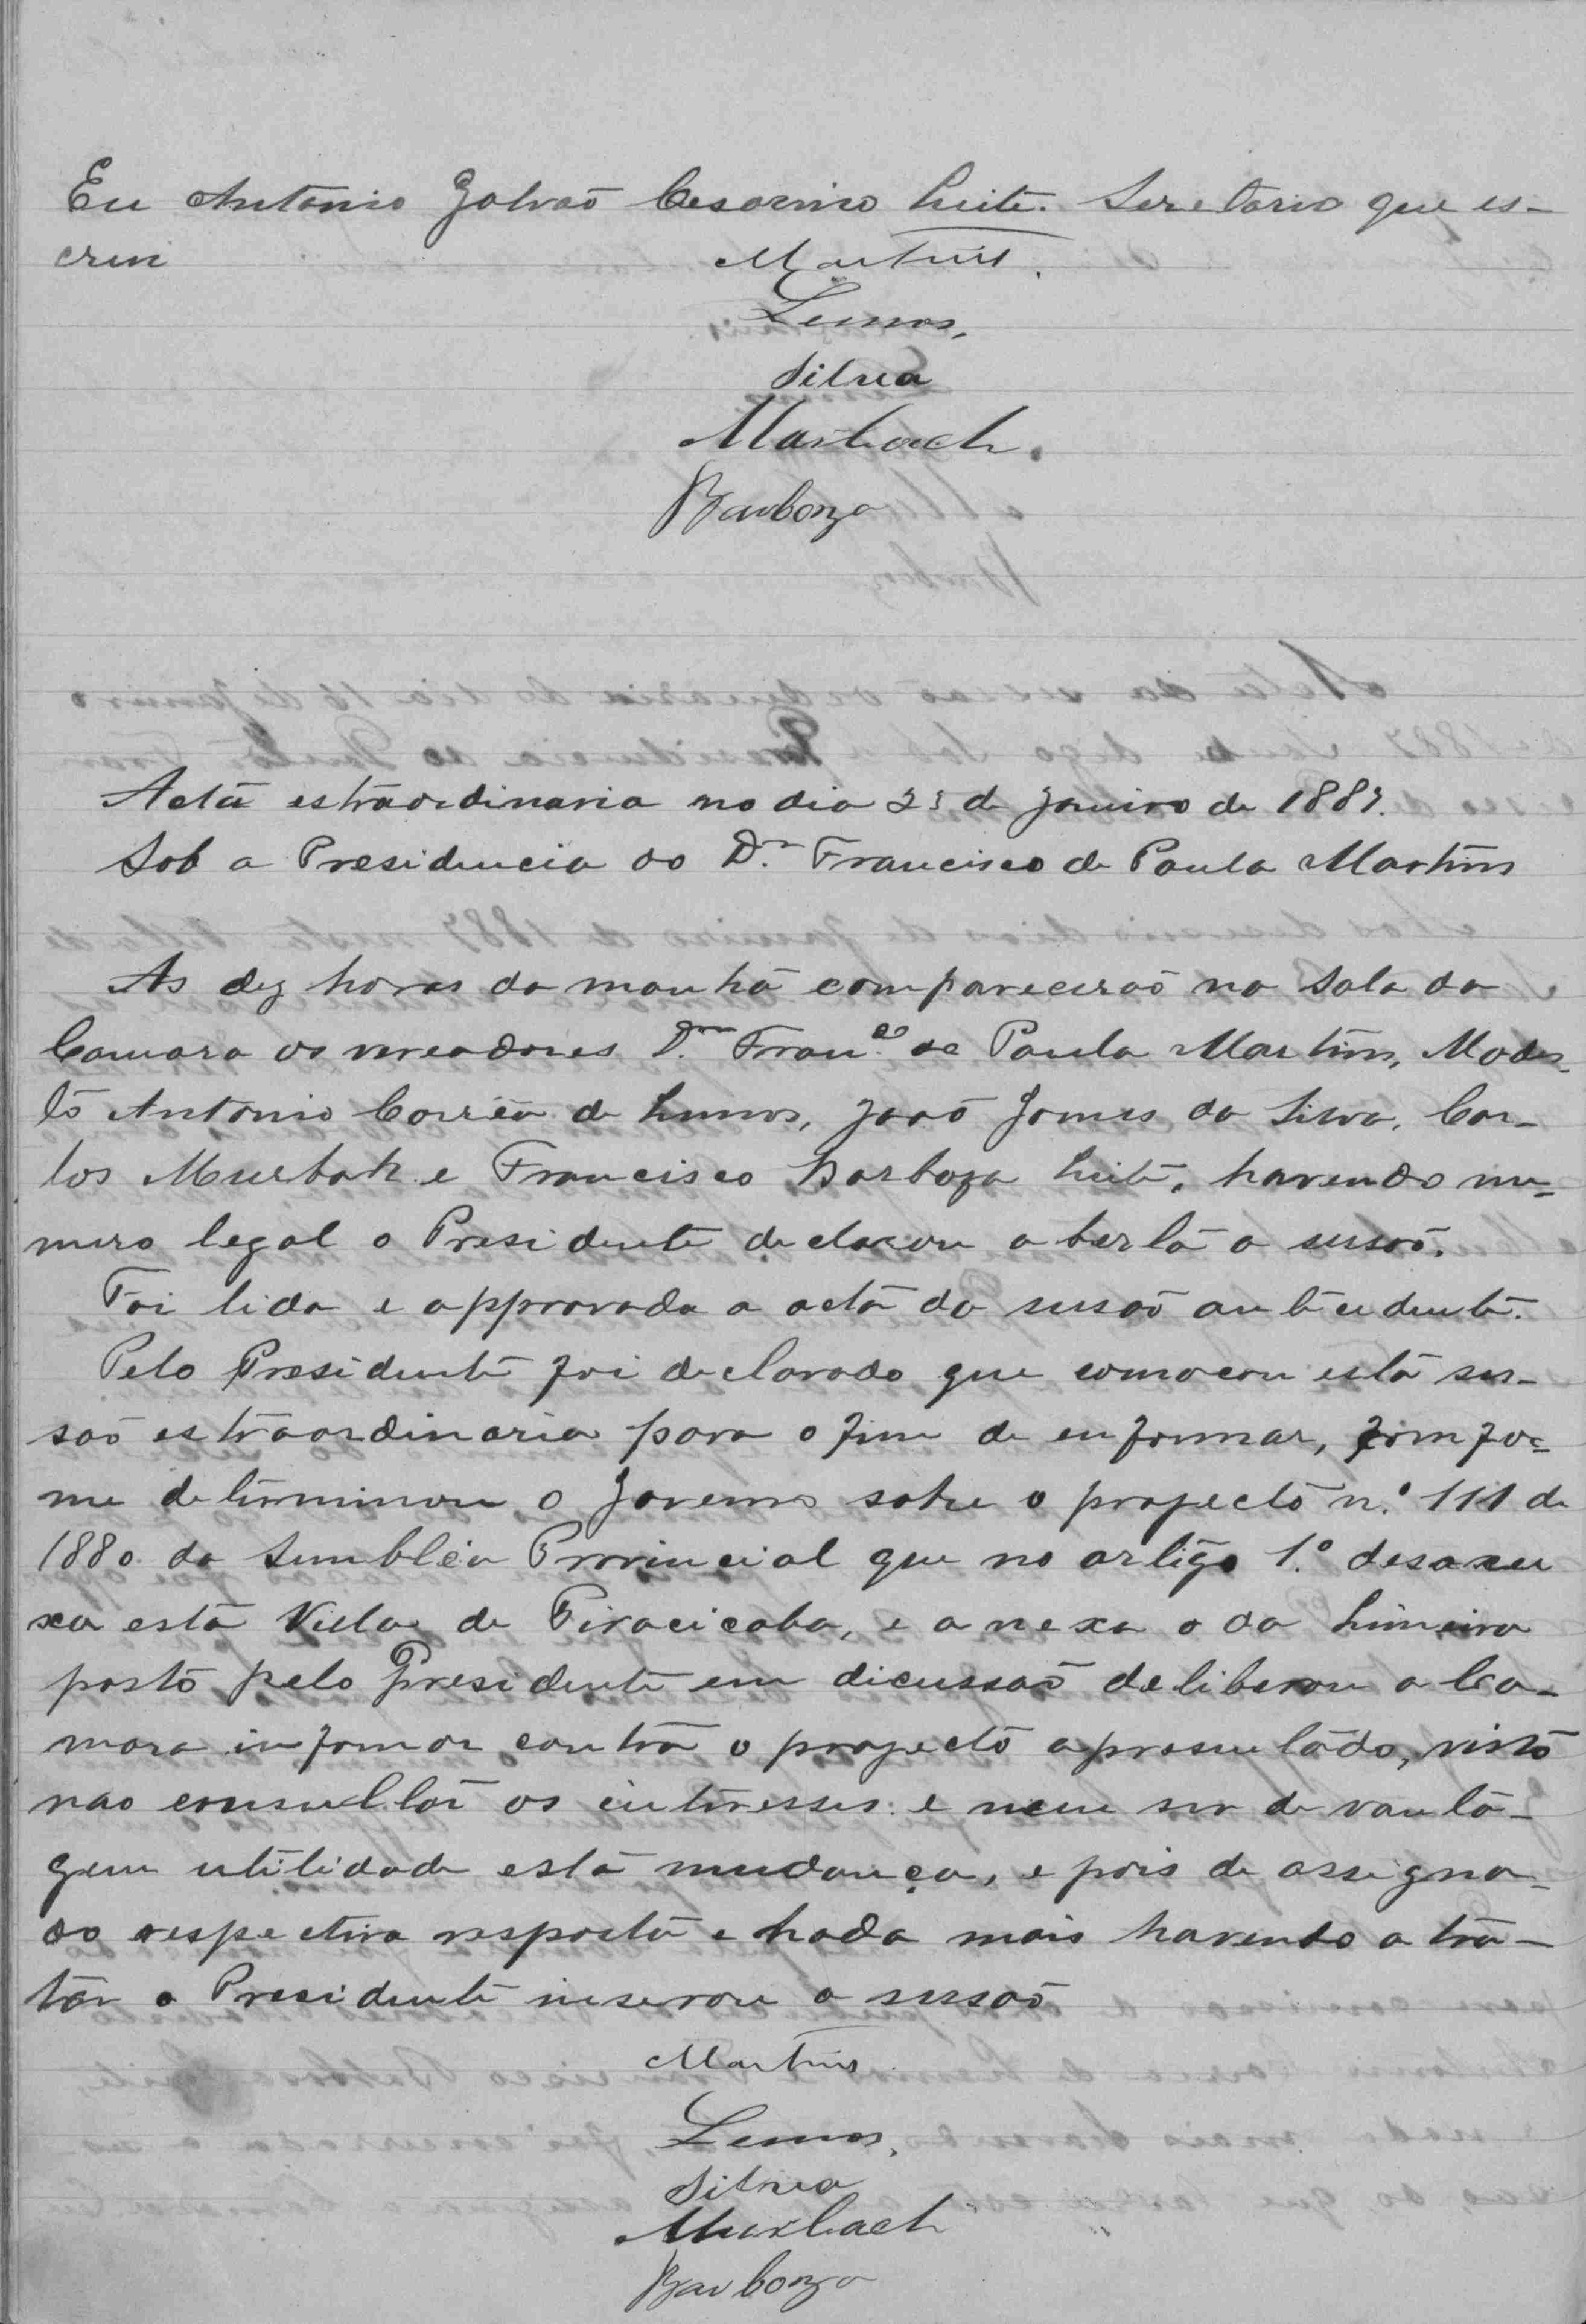 Eu Antonio Galvaõ Cesarino Leite. Seretario que es-
crevi
Martins.
Lemos,
Silva
Marbach.
Barboza
Acta estraordinaria no dia 23 de Janeiro de 1887.
Sob a Presidencia do D.r Francisco de Paula Martins
As dez horas da manhã compareceraõ na Sala da
Camara os vereadores D.r Fran.co de Paula Martins, Modes-
to Antonio Corrêa de Lemos, Joaõ Gomes da Silva, Car-
los Murbak e Francisco Barboza Leite, havendo nu-
mero legal o Presidente declarou aberta a sessaõ.
Foi lida e approvada a acta da sessaõ antecedente.
Pelo Presidente foi declarado que convocou esta ses-
saõ estraordinaria para o fim de enformar, comfor-
me determinou o Governo sobre o projecto n.º 111 de
1880 da Assemblèa Provincial que no artigo 1.º desane
xa esta Villa de Piracicaba, e anexa o da Limeira
posto pelo Presidente em dicussaõ deliberou a Ca-
mara informar contra o projecto apresentado, visto
nao consultar os interesses e nem ser de vanta-
gem utilidade esta mudança, e pois de assigna-
do respectiva resposta e nada mais havendo a tra-
tar o Presidente a sessaõ
Martins
Lemos,
Silva
Murbach
Barboza